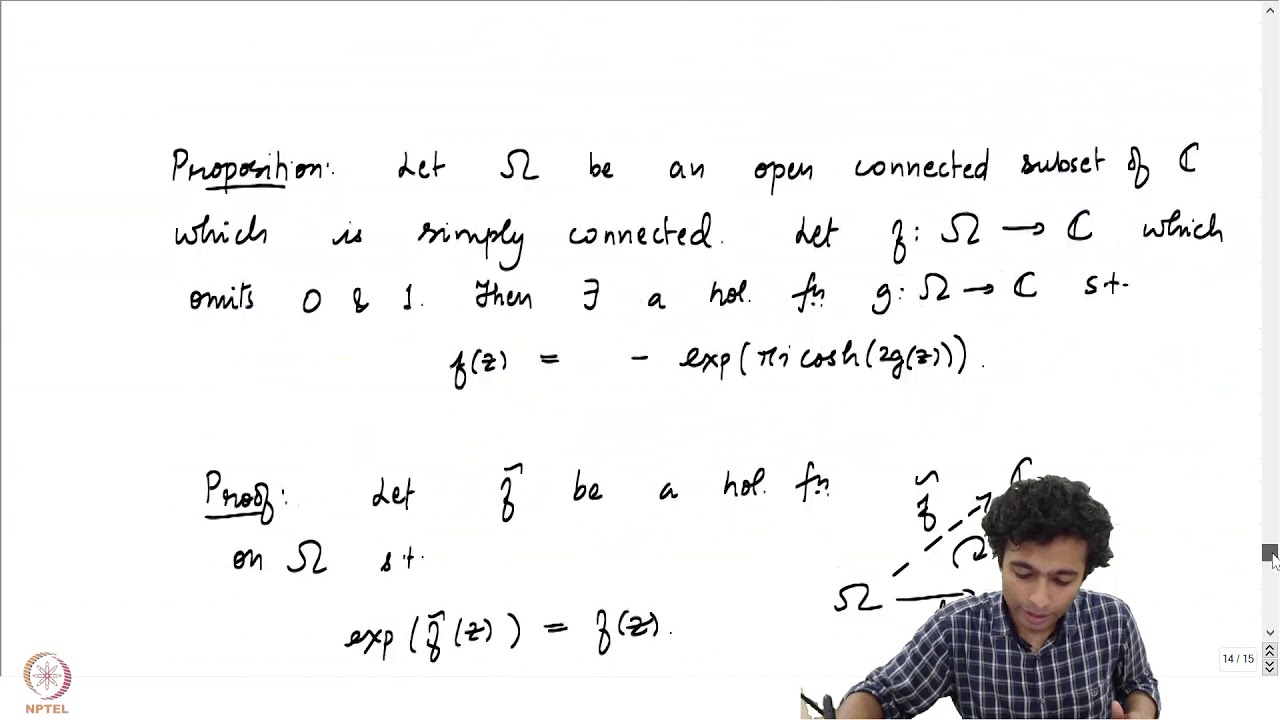 Proposition: Let Ω be an open connected subset of ℂ
which is simply connected. Let f: Ω → ℂ which
omits 0 & 1. Then ∃ a hol. fn g: Ω → ℂ s.t.
f(z) = - exp(πi cosh(2g(z))).
Proof: Let f̃ be a hol. fn
f̃ ℂ
on Ω s.t.
Ω →
exp(f̃(z)) = f(z).
14 / 15
NPTEL